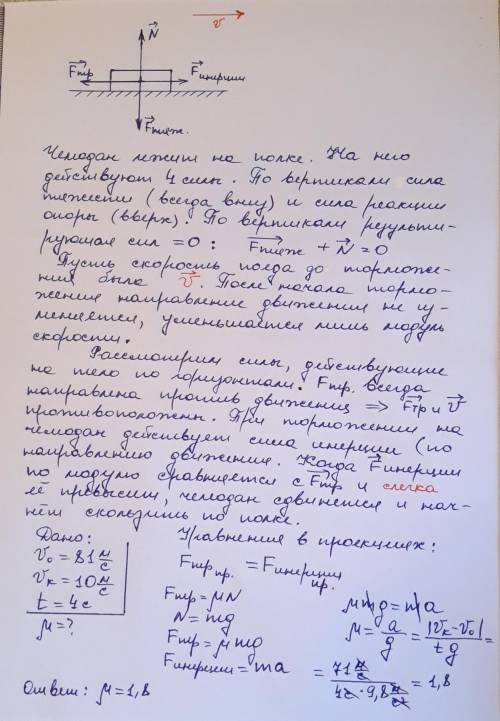 v⃗
N⃗
F⃗тр F⃗инерции
F⃗тяж.
Чемодан лежит на полке. На него
действуют 4 силы. По вертикали сила
тяжести (всегда вниз) и сила реакции
опоры (вверх). По вертикали результи-
рующая сил =0 : F⃗тяж + N⃗ = 0
Пусть скорость поезда до торможе-
ния была v⃗. После начала тормо-
жения направление движения не из-
меняется, уменьшается лишь модуль
скорости.
Рассмотрим силы, действующие
на тело по горизонтали. Fтр. всегда
направлена против движения ⇒ F⃗тр и v⃗
противоположны. При торможении на
чемодан действует сила инерции (по
направлению движения. Когда F⃗инерции
по модулю сравняется с F⃗тр и слегка
её превысит, чемодан сдвинется и нач-
нёт скользить по полке.
Дано:
v₀ = 81 м/с
vк = 10 м/с
t = 4 с
μ = ?
Уравнения в проекциях:
Fтр пр. = Fинерции пр.
Fтр = μN
N = mg
Fтр = μmg
Fинерции = ma
μmg = ma
μ = a/g = |vк - v₀|/tg =
= 71 м/с / 4с · 9,8 м/с² = 1,8
Ответ: μ = 1,8